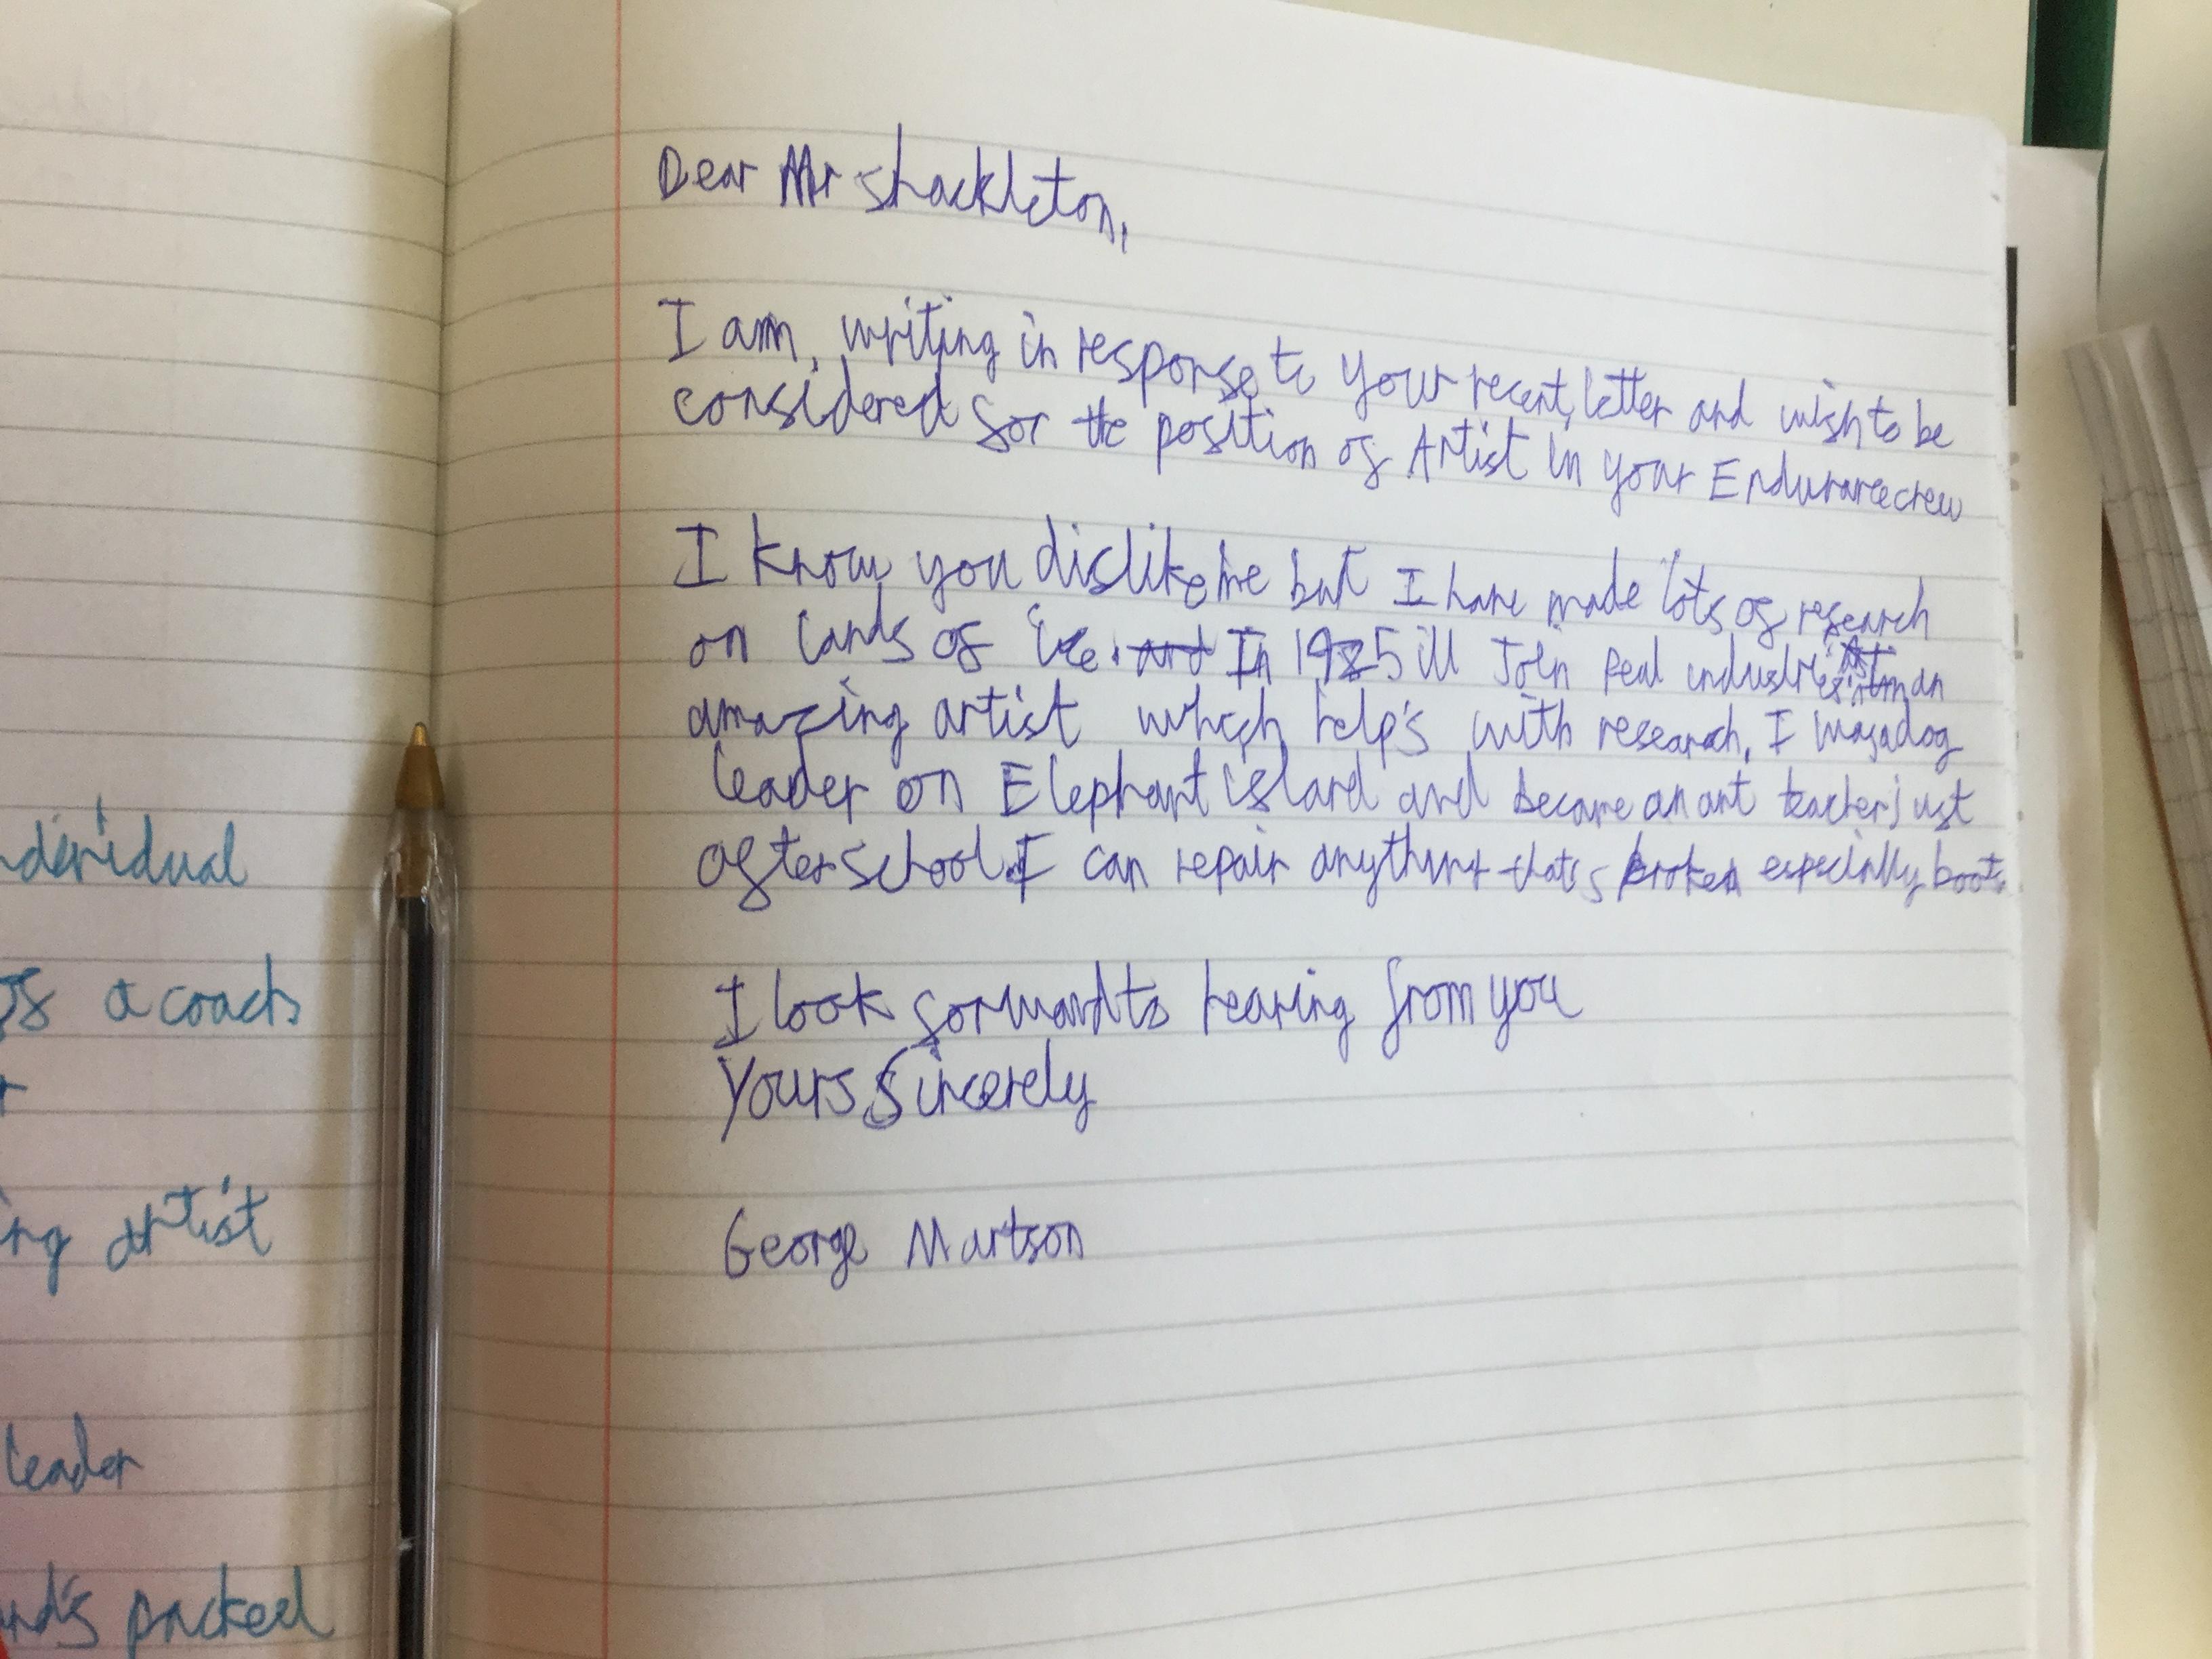 Dear Mr Shackleton,
I am, writing in response to your recent letter and wish to be
considered for the position of Artist in your Endurance crew
I know you dislike me but I have made lots of research
on lands of ice. and In 1925 ill Join Peal industries an
amazing artist which help's with research, I was a dog
leader on Elephant island and became an art teacher just
after school. I can repair anything thats broken especially boots
I look forward to hearing from you
Yours Sincerely
George Martson
ndividual
of a coach
r
ing artist
leader
nd's packed